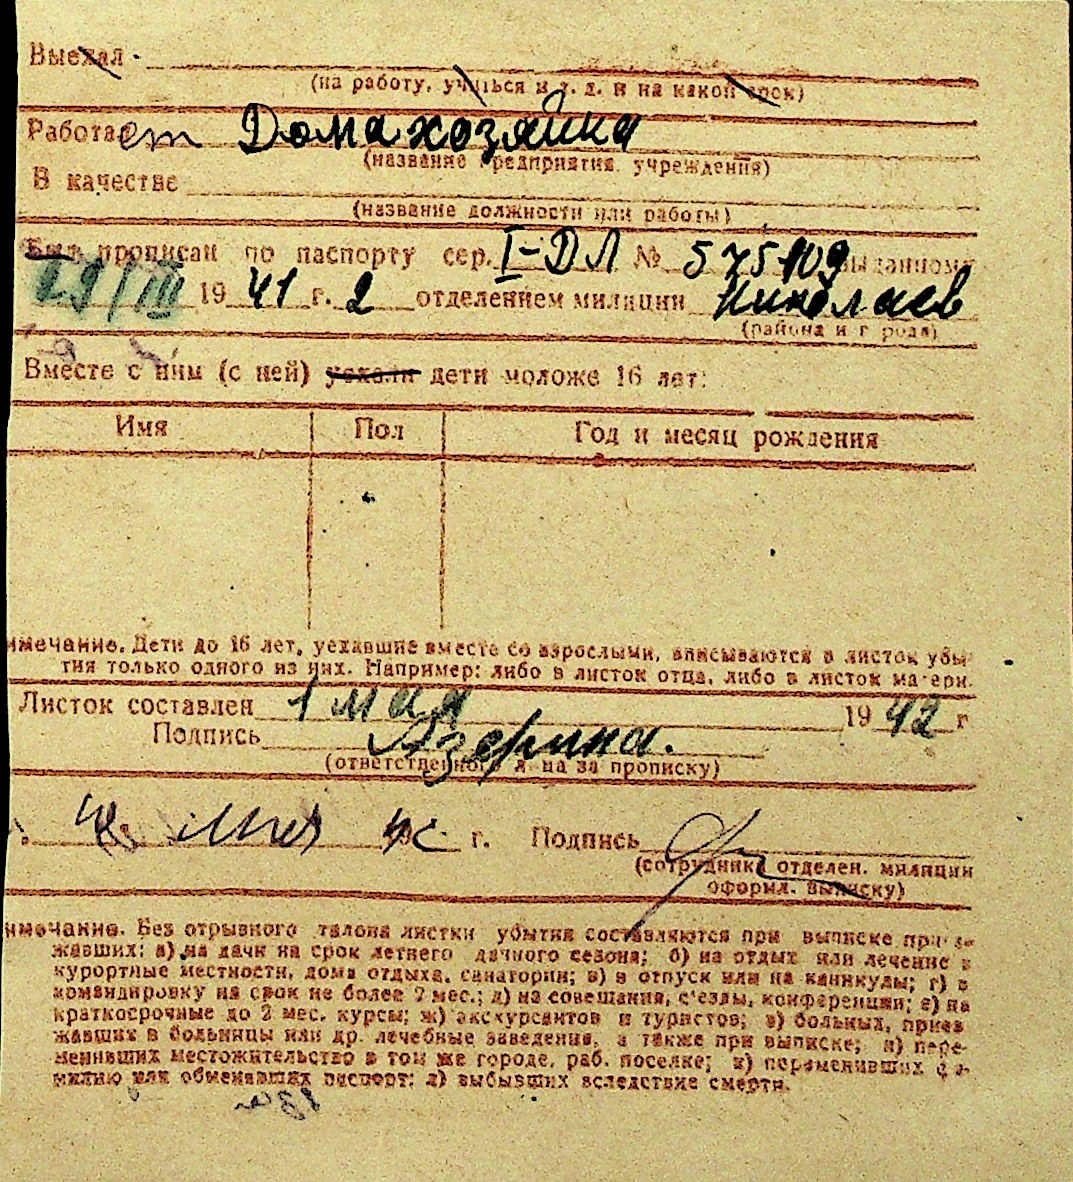 Выехал
(на работу, учиться и т. д. и на какой срок)
Работает Домахозяйка
(название предприятия, учреждения)
В качестве
(название должности или работы)
Был прописан по паспорту сер. I-ДЛ № 575109 выданному
29/III 1941 г. 2 отделением милиции Николаев
(района и города)
Вместе с ним (с ней) уехали дети моложе 16 лет:
Имя Пол Год и месяц рождения
имечание. Дети до 16 лет, уехавшие вместе со взрослыми, вписываются в листок убы-
тия только одного из них. Например: либо в листок отца, либо в листок матери.
Листок составлен 1 мая 1942 г
Подпись Азерина.
(ответственного л-на за прописку)
мая г. Подпись
(сотрудника отделен. милиции
оформл. выписку)
имечание. Без отрывного талона листки убытия составляются при выписке приез-
жавших: а) на дачи на срок летнего дачного сезона; б) на отдых или лечение в
курортные местности, дома отдыха, санатории; в) в отпуск или на каникулы; г) в
командировку на срок не более 2 мес.; д) на совещания, с'езды, конференции; е) на
краткосрочные до 2 мес. курсы; ж) экскурсантов и туристов; з) больных, приез-
жавших в больницы или др. лечебные заведения, а также при выписке; и) пере-
менивших местожительство в том же городе, раб. поселке; к) переменивших фа-
милию или обменявших паспорт; л) выбывших вследствие смерти.